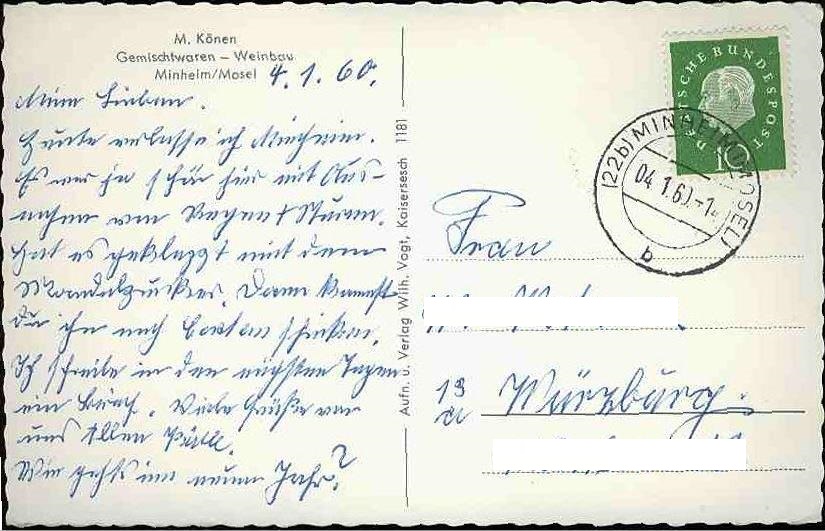 M. Könen
Gemischtwaren – Weinbau
Minheim/Mosel 4.1.60.
Meine Lieben.
Heute verlasse ich Minheim.
Es war ja schön hier mit Aus-
nahme von Regen + Sturm.
Hat es geklappt mit dem
Mandelzucker. Dann kannst
Du ihn nach schicken.
Ich schreibe in den nächsten Tagen
ein Brief. Viele Grüße von
uns Allen
Wie gehts im neuen Jahr?
Aufn. u. Verlag Wilh. Vogt, Kaisersesch 1181
DEUTSCHE BUNDESPOST
10
(22b) MINHEIM (MOSEL)
04.1.60.-1
b
Frau
13
a
Würzburg.